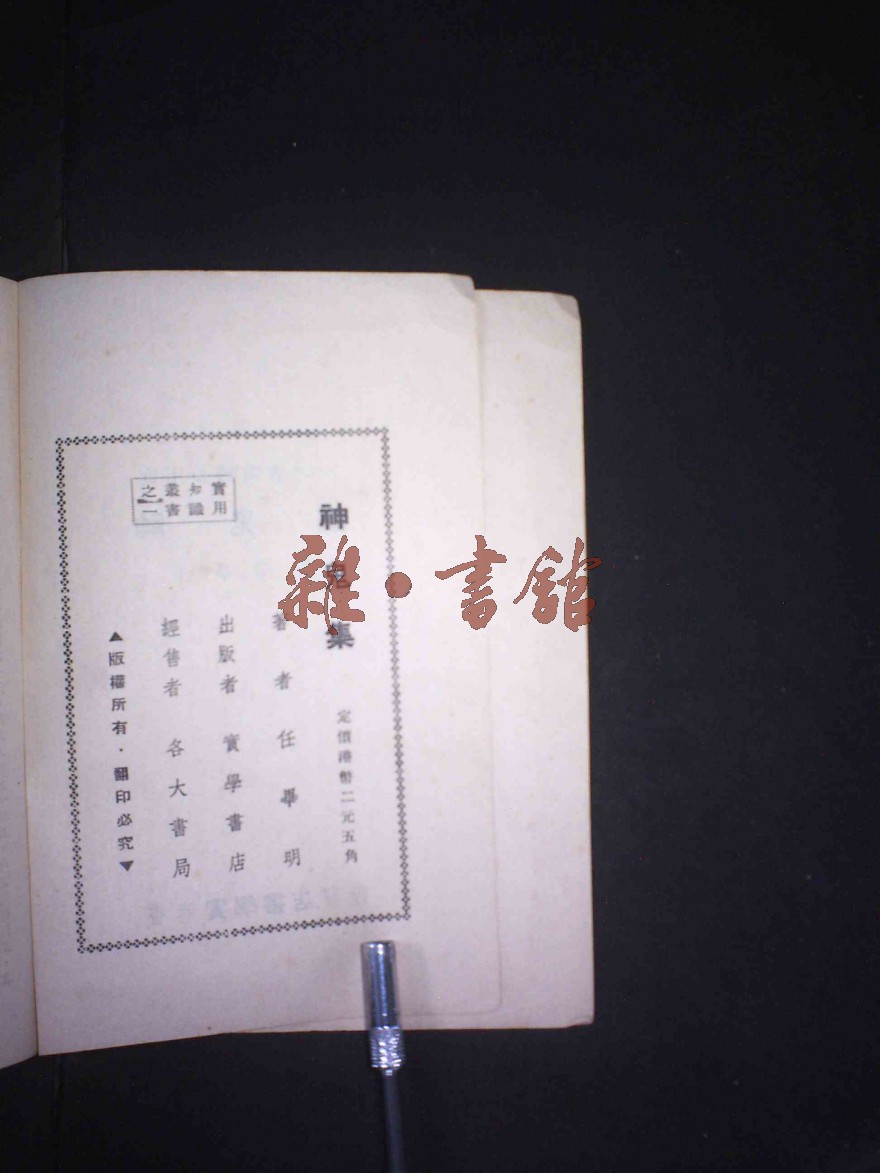 實用
知識
叢書
之一
神鬼集
定價港幣二元五角
著者 任畢明
出版者 實學書店
經售者 各大書局
▲版權所有．翻印必究▼
雜·書館